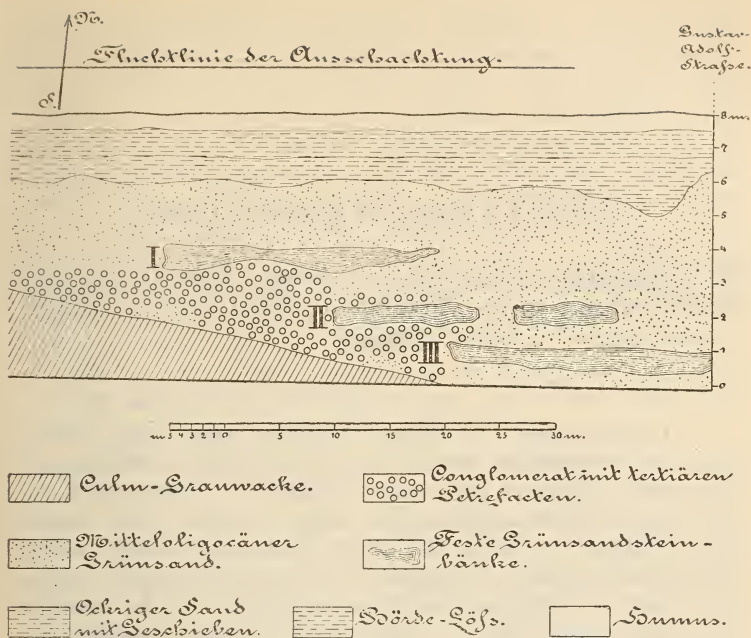 N.
Fluchtlinie der Ausschachtung.
Gustav-
Adolf-
Straße.
S.
8 m.
7
6
5
4
3
2
1
0
I
II
III
m 5 4 3 2 1 0 5 10 15 20 25 30 m.
Culm-Grauwacke.
Conglomerat mit tertiären
Petrefacten.
Mitteloligocäner
Grünsand.
Feste Grünsandstein-
bänke.
Ockriger Sand
mit Geschieben.
Börde-Löß.
Humus.